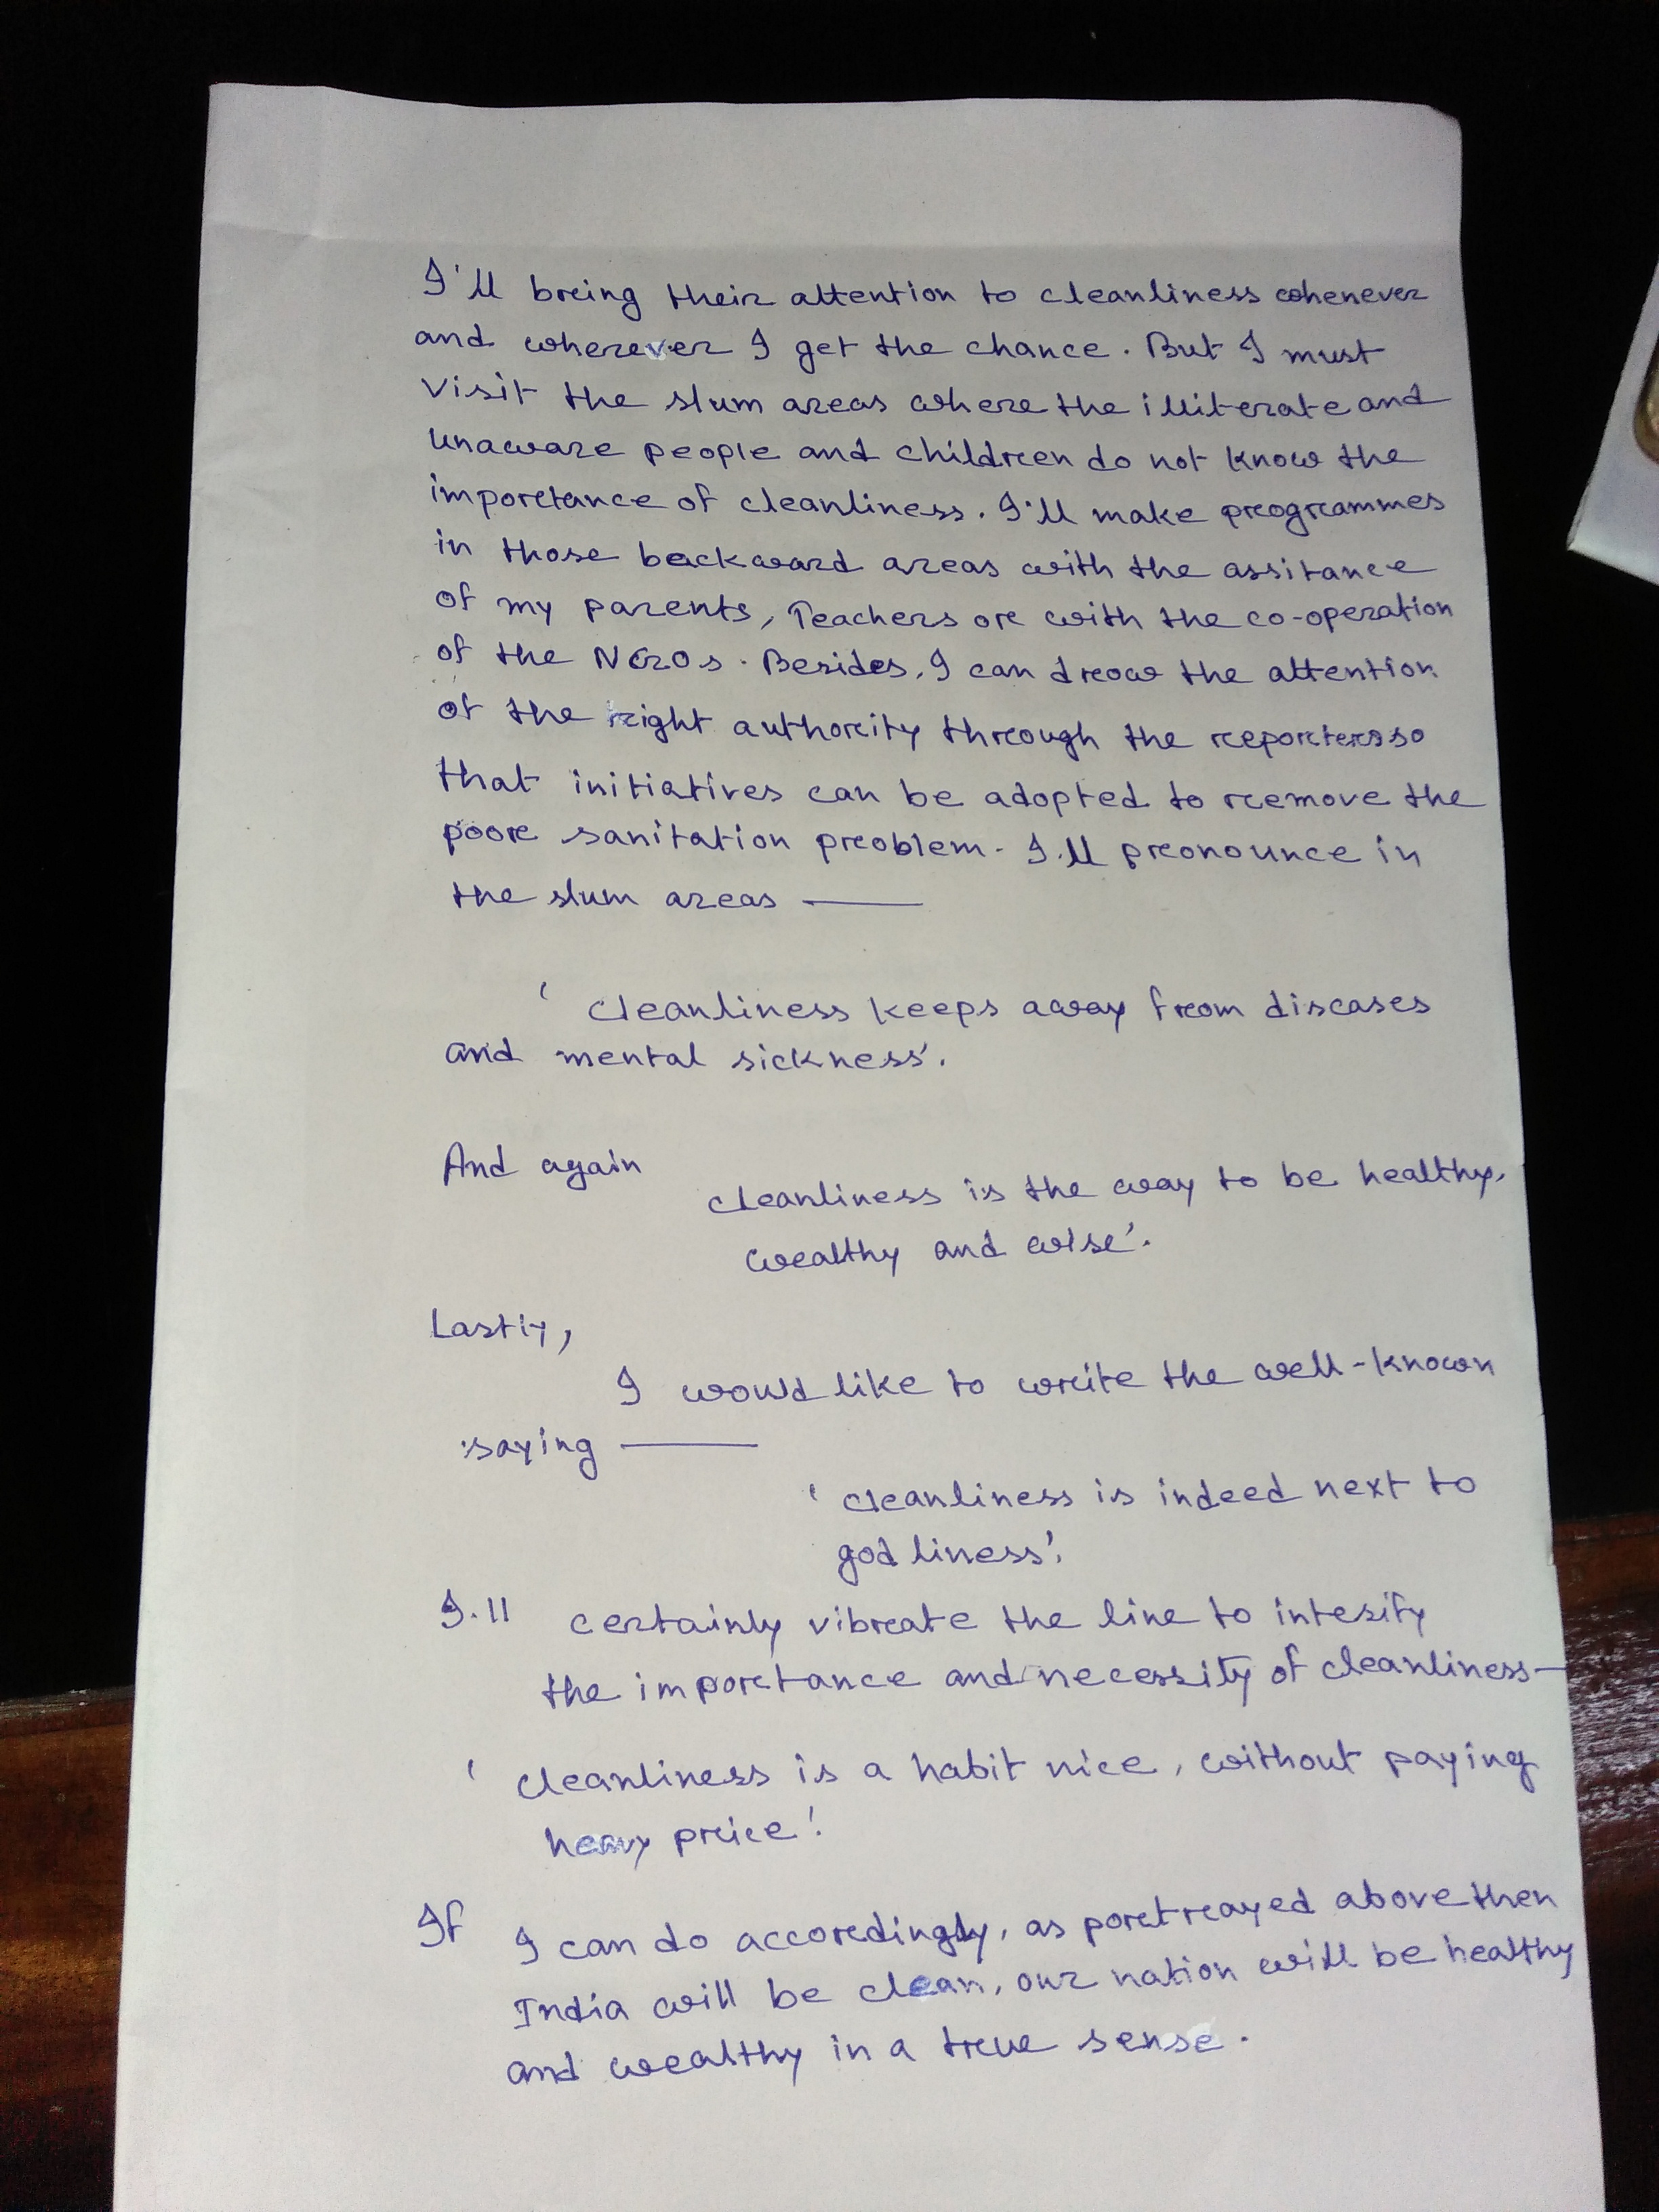 I'll bring their attention to cleanliness whenever
and wherever I get the chance. But I must
visit the slum areas where the illiterate and
unaware people and children do not know the
importance of cleanliness. I'll make programmes
in those backward areas with the assitance
of my parents, Teachers or with the co-operation
of the NGOs. Besides, I can draw the attention
of the right authority through the reporters so
that initiatives can be adopted to remove the
poor sanitation problem. I'll pronounce in
the slum areas ——
' Cleanliness keeps away from diseases
and mental sickness'.
And again
cleanliness is the way to be healthy,
wealthy and wise'.
Lastly,
I would like to write the well-known
saying ——
' cleanliness is indeed next to
godliness'.
I'll certainly vibrate the line to intesify
the importance and necessity of cleanliness—
' cleanliness is a habit nice, without paying
heavy price'.
If I can do accordingly, as portrayed above then
India will be clean, our nation will be healthy
and wealthy in a true sense.